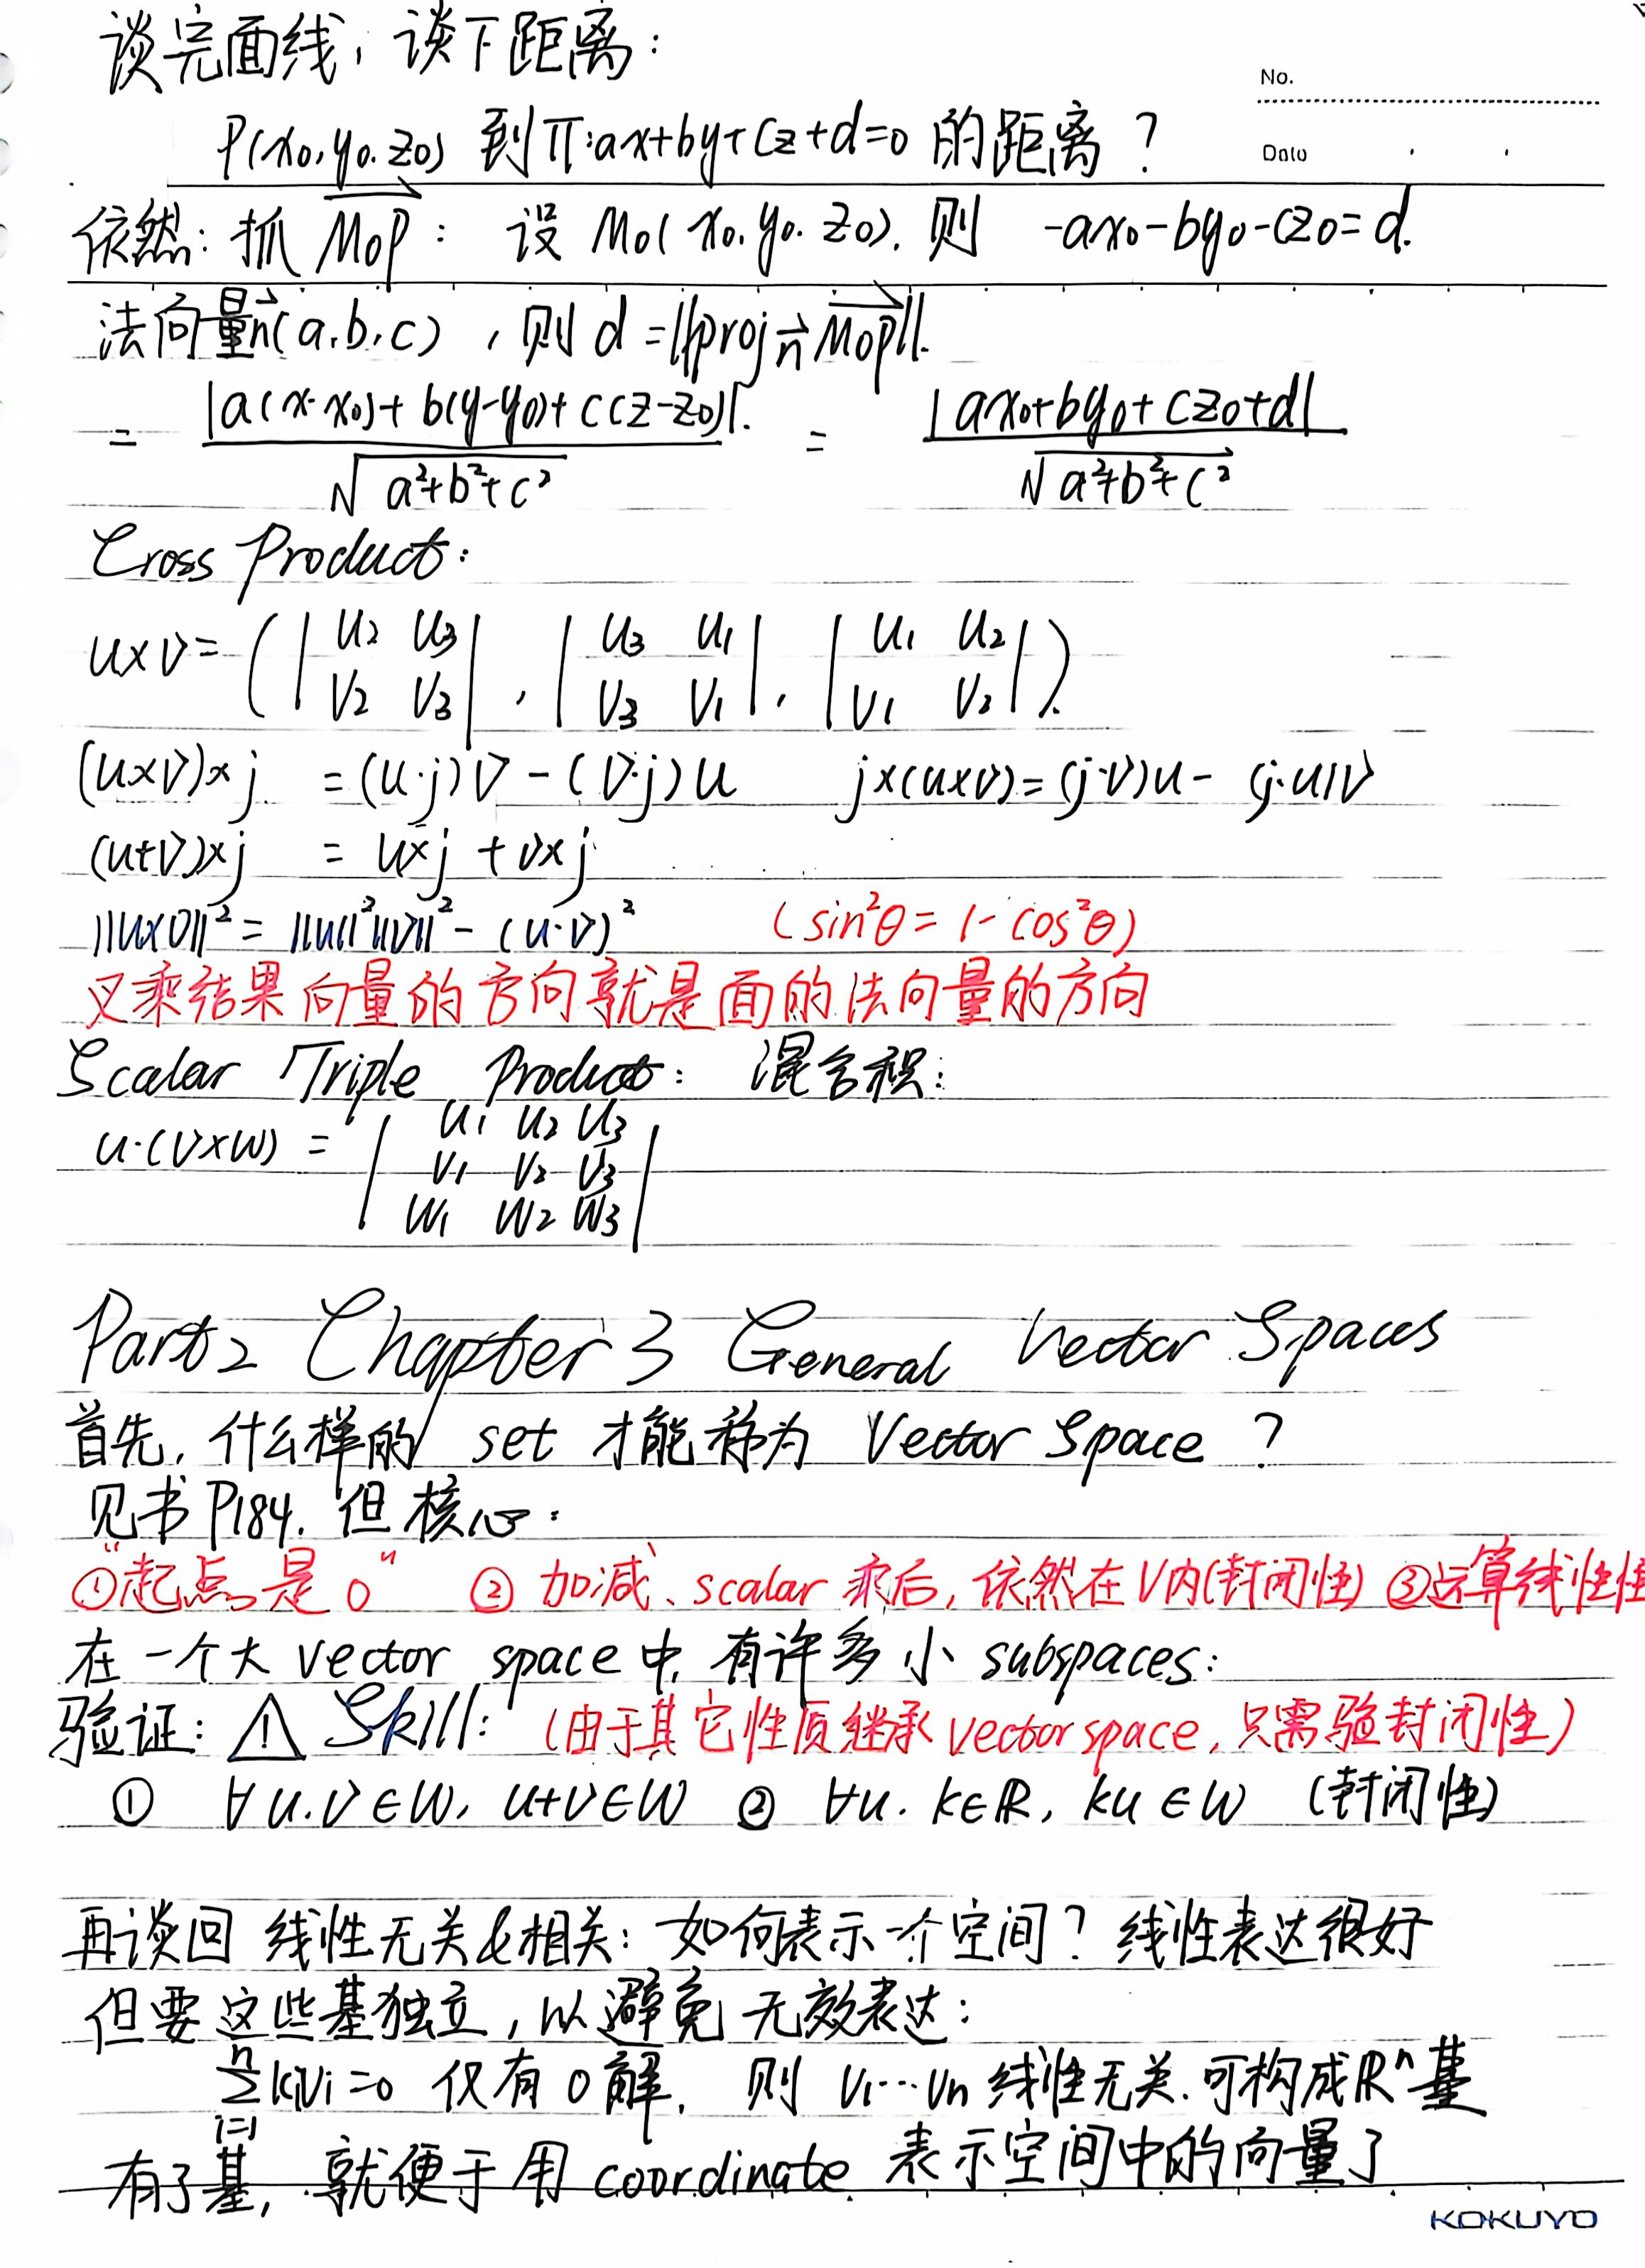 谈完面线，谈下距离：
No.
P(x₀,y₀,z₀) 到π:ax+by+cz+d=0 的距离？
Date
依然：抓 M₀P：设 M₀(x₀,y₀,z₀). 则 -ax₀-by₀-cz₀=d.
法向量n(a,b,c)，则 d=||proj n M₀P||.
= |a(x-x₀)+b(y-y₀)+c(z-z₀)| / √a²+b²+c² = |ax₀+by₀+cz₀+d| / √a²+b²+c²
Cross Product:
u×v=( | u₂ u₃ | , | u₃ u₁ | , | u₁ u₂ | ).
| v₂ v₃ | , | v₃ v₁ | , | v₁ v₂ |
(u×v)×j =(u·j)v-(v·j)u j×(u×v)=(j·v)u-(j·u)v
(u+v)×j = u×j+v×j
||u×v||²=||u||²||v||²-(u·v)² (sin²θ=1-cos²θ)
叉乘结果向量的方向就是面的法向量的方向
Scalar Triple Product: 混合积：
u·(v×w) = | u₁ u₂ u₃ |
| v₁ v₂ v₃ |
| w₁ w₂ w₃ |
Part2 Chapter 3 General Vector Spaces
首先，什么样的 set 才能称为 Vector Space？
见书P184. 但核心：
①"起点是0" ②加减、scalar 乘后，依然在V内(封闭性) ③运算线性性
在一个大 vector space中，有许多小 subspaces：
验证：⚠ Skill：(由于其它性质继承vector space，只需验封闭性)
① ∀u.v∈W, u+v∈W ② ∀u. k∈ℝ, ku∈W (封闭性)
再谈回 线性无关&相关：如何表示一个空间？线性表达很好
但要这些基独立，以避免无效表达：
∑ⁿᵢ₌₁kᵢvᵢ=0 仅有0解. 则 v₁…vₙ线性无关.可构成ℝⁿ基
有了基，就便于用 coordinate 表示空间中的向量了
KOKUYO